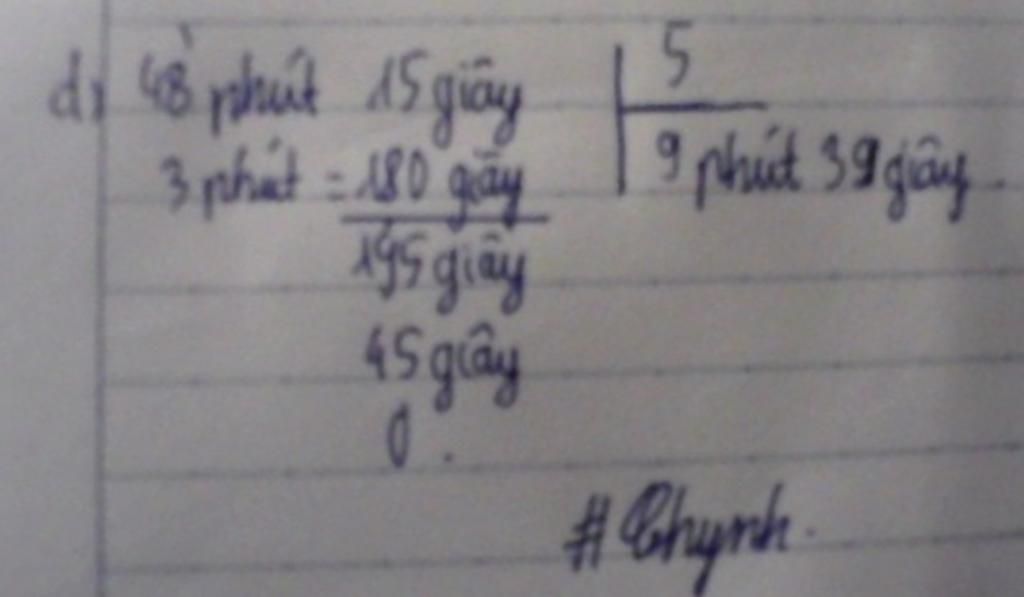 d) 48 phút 15 giây 5
3 phút = 180 giây 9 phút 39 giây.
195 giây
45 giây
0.
# Chynh.